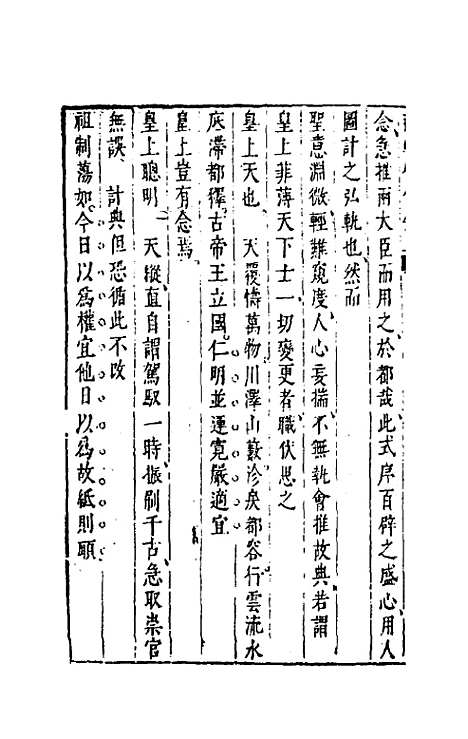 念急推兩大臣而用之於都哉此式序百辟之盛心用人
圖計之弘軌也然而
聖意淵微輕難窺度人心妄揣不無執會推故典若謂
皇上菲薄天下士一切變更者職伏思之
皇上天也天覆幬萬物川澤山藪沴戾都容行雲流水
底滯都釋古帝王立國仁明並運寬嚴適宜
皇上豈有念焉
皇上聰明天縱直自謂駕馭一時振刷千古急取崇官
無誤計典但恐循此不改
祖制蕩如今日以為權宜他日以為故紙則頤